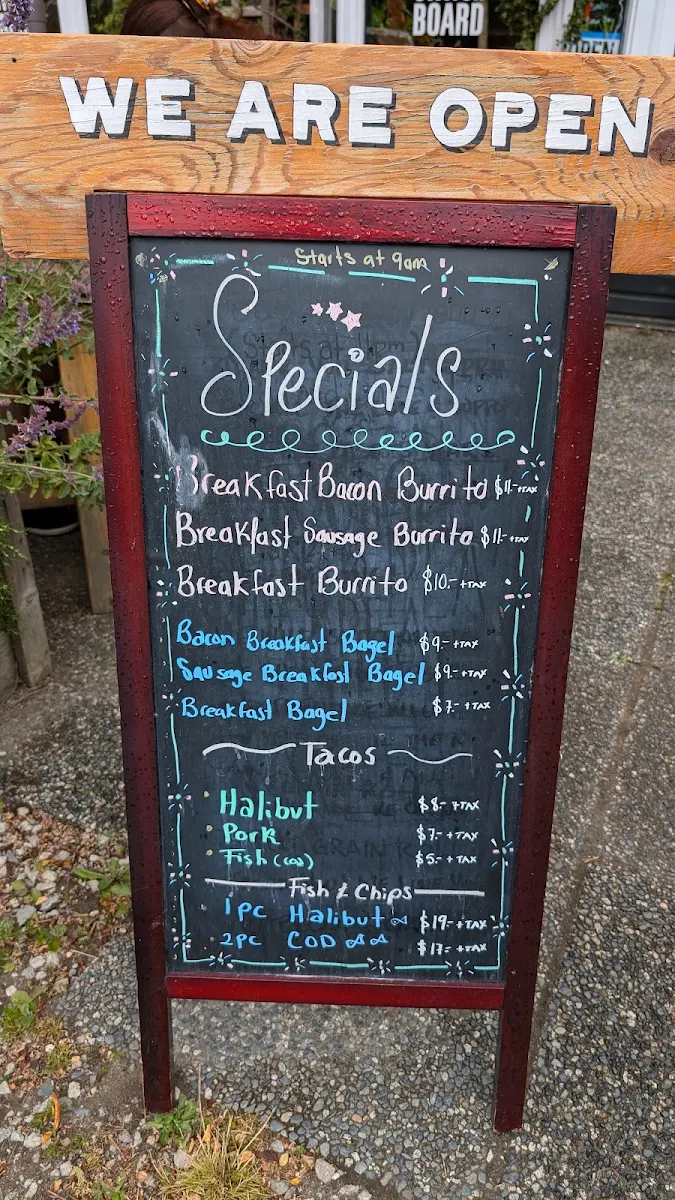 BOARD
OPEN
WE ARE OPEN
Starts at 9am
Specials
Breakfast Bacon Burrito $11.- +TAX
Breakfast Sausage Burrito $11.- +TAX
Breakfast Burrito $10.- +TAX
Bacon Breakfast Bagel $9.- +TAX
Sausage Breakfast Bagel $9.- +TAX
Breakfast Bagel $7.- +TAX
Tacos
Halibut $8.- +TAX
Pork $7.- +TAX
Fish (COD) $5.- +TAX
Fish & Chips
1PC Halibut $19.- +TAX
2PC COD $17.- +TAX